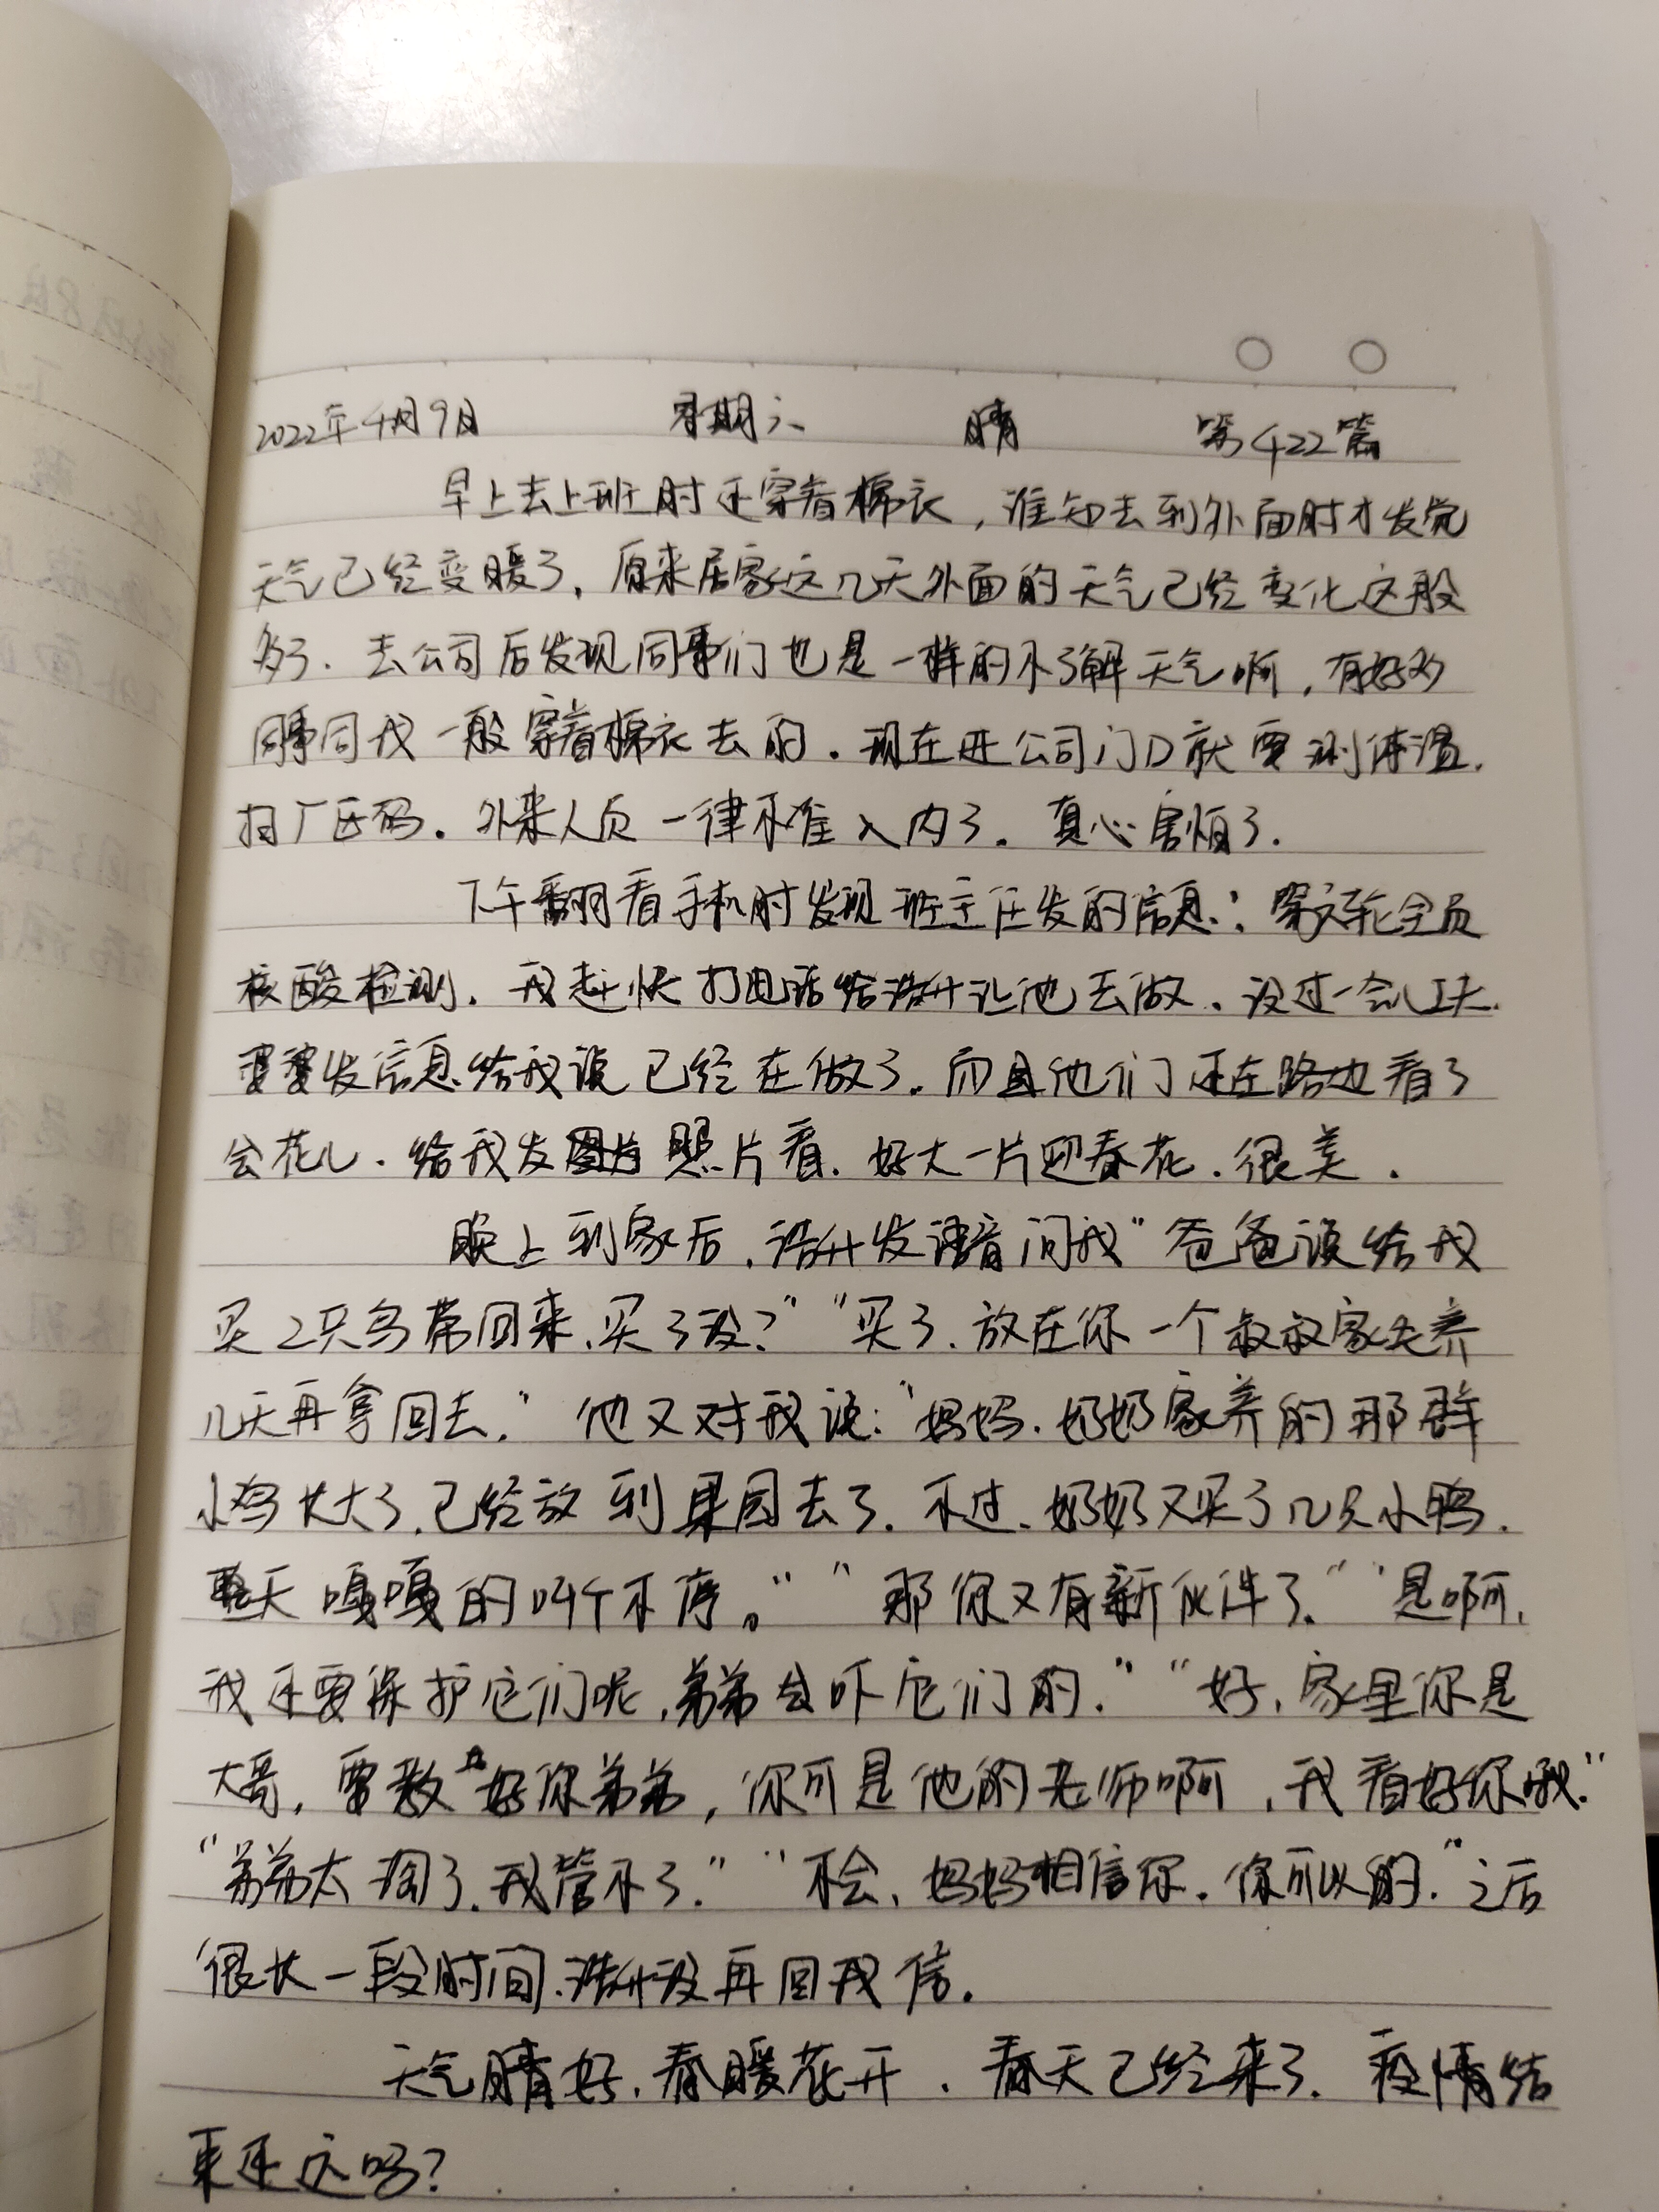 2022年4月9日 星期六 晴 第422篇
早上去上班时还穿着棉衣，谁知去到外面时才发觉
天气已经变暖了，原来居家这几天外面的天气已经变化这般
多了．去公司后发现同事们也是一样的不了解天气啊，有好多
同事同我一般穿着棉衣去的．现在进公司门口就要测体温．
扫厂区码．外来人员一律不准入内了．真心害怕了．
下午翻看手机时发现班主任发的信息：第 轮全员
核酸检测．我赶快打电话给浩升让他去做．没过一会儿
婆婆发信息给我说已经在做了．而且他们还在路边看了
会花儿．给我发 照片看．好大一片迎春花．很美．
晚上到家后，浩升发语音问我“爸爸说给我
买2只鸟带回来，买了没？”“买了．放在你一个叔叔家先养
几天再拿回去．”他又对我说：“妈妈．奶奶家养的那群
小鸡长大了，已经放到果园去了．不过．奶奶又买了几只小鸭．
整天嘎嘎的叫个不停。”“那你又有新伙伴了．”“是啊，
我还要保护它们呢，弟弟会吓它们的．”“好，家里你是
大哥，要教 好你弟弟，你可是他的老师啊，我看好你哦．”
“弟弟太淘了，我管不了．”“不会，妈妈相信你．你可以的．”之后
很长一段时间，浩升没再回我信．
天气晴好，春暖花开．春天已经来了．疫情结
束还远吗？